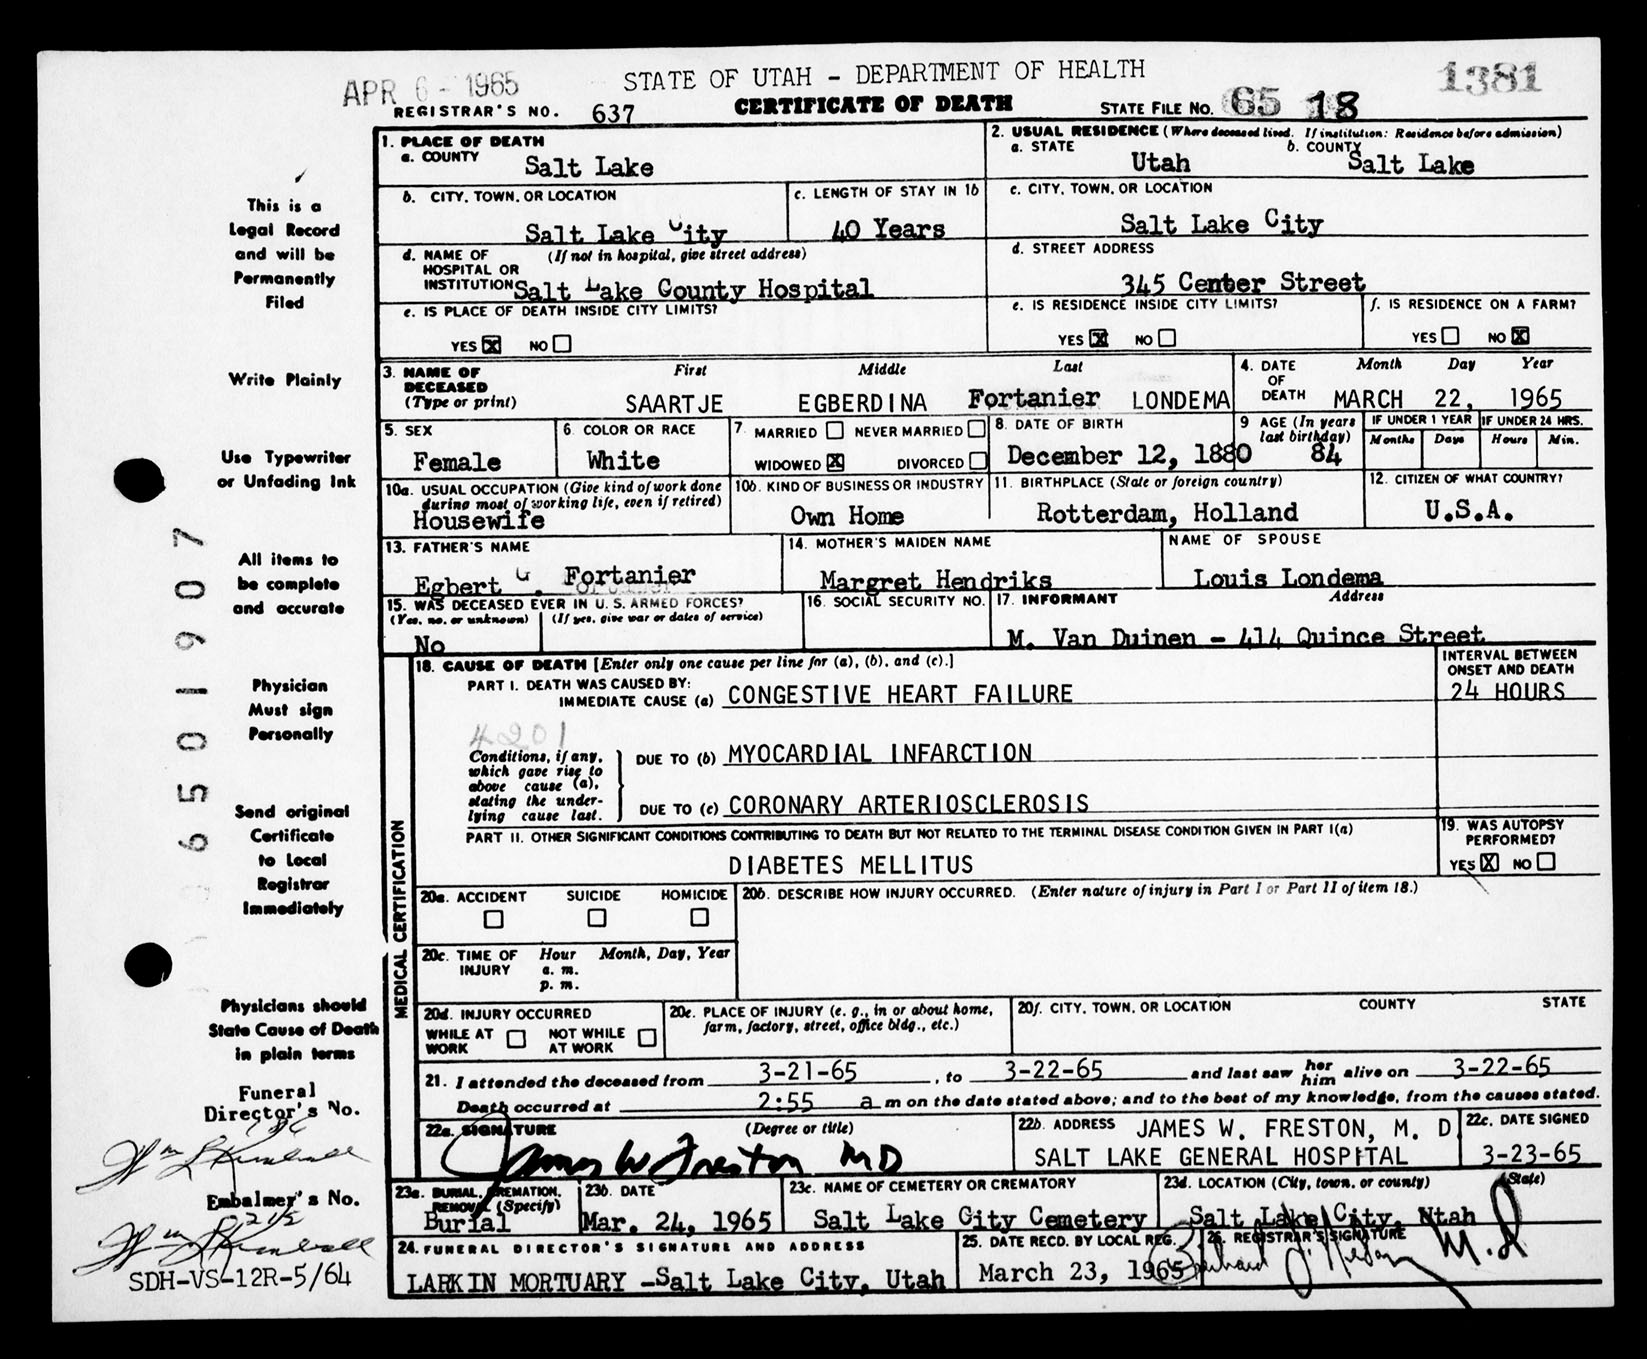 APR 6 - 1965
STATE OF UTAH - DEPARTMENT OF HEALTH
1381
REGISTRAR'S NO. 637
CERTIFICATE OF DEATH
STATE FILE NO. 65 18
1. PLACE OF DEATH
a. COUNTY Salt Lake
2. USUAL RESIDENCE (Where deceased lived. If institution: Residence before admission)
a. STATE Utah b. COUNTY Salt Lake
b. CITY, TOWN, OR LOCATION
Salt Lake City
c. LENGTH OF STAY IN 1b
40 Years
c. CITY, TOWN, OR LOCATION
Salt Lake City
d. NAME OF HOSPITAL OR INSTITUTION (If not in hospital, give street address)
Salt Lake County Hospital
d. STREET ADDRESS
345 Center Street
e. IS PLACE OF DEATH INSIDE CITY LIMITS?
YES X NO
e. IS RESIDENCE INSIDE CITY LIMITS?
YES X NO
f. IS RESIDENCE ON A FARM?
YES NO X
3. NAME OF DECEASED (Type or print)
First Middle Last
SAARTJE EGBERDINA Fortanier LONDEMA
4. DATE OF DEATH Month Day Year
MARCH 22, 1965
5. SEX
Female
6 COLOR OR RACE
White
7. MARRIED NEVER MARRIED
WIDOWED X DIVORCED
8. DATE OF BIRTH
December 12, 1880
9 AGE (In years last birthday)
84
IF UNDER 1 YEAR
Months Days
IF UNDER 24 HRS.
Hours Min.
10a. USUAL OCCUPATION (Give kind of work done during most of working life, even if retired)
Housewife
10b. KIND OF BUSINESS OR INDUSTRY
Own Home
11. BIRTHPLACE (State or foreign country)
Rotterdam, Holland
12. CITIZEN OF WHAT COUNTRY?
U.S.A.
13. FATHER'S NAME
Egbert G. Fortanier
14. MOTHER'S MAIDEN NAME
Margret Hendriks
NAME OF SPOUSE
Louis Londema
15. WAS DECEASED EVER IN U.S. ARMED FORCES?
(Yes, no, or unknown) (If yes, give war or dates of service)
No
16. SOCIAL SECURITY NO.
17. INFORMANT Address
M. Van Duinen - 414 Quince Street
MEDICAL CERTIFICATION
18. CAUSE OF DEATH [Enter only one cause per line for (a), (b), and (c).]
INTERVAL BETWEEN ONSET AND DEATH
PART I. DEATH WAS CAUSED BY:
IMMEDIATE CAUSE (a) CONGESTIVE HEART FAILURE
24 HOURS
4201
Conditions, if any, which gave rise to above cause (a), stating the underlying cause last.
DUE TO (b) MYOCARDIAL INFARCTION
DUE TO (c) CORONARY ARTERIOSCLEROSIS
PART II. OTHER SIGNIFICANT CONDITIONS CONTRIBUTING TO DEATH BUT NOT RELATED TO THE TERMINAL DISEASE CONDITION GIVEN IN PART I(a)
DIABETES MELLITUS
19. WAS AUTOPSY PERFORMED?
YES X NO
20a. ACCIDENT SUICIDE HOMICIDE
20b. DESCRIBE HOW INJURY OCCURRED. (Enter nature of injury in Part I or Part II of item 18.)
20c. TIME OF INJURY Hour Month, Day, Year
a. m.
p. m.
20d. INJURY OCCURRED
WHILE AT WORK NOT WHILE AT WORK
20e. PLACE OF INJURY (e. g., in or about home, farm, factory, street, office bldg., etc.)
20f. CITY, TOWN, OR LOCATION COUNTY STATE
21. I attended the deceased from 3-21-65, to 3-22-65 and last saw her him alive on 3-22-65
Death occurred at 2:55 a m on the date stated above; and to the best of my knowledge, from the causes stated.
22a. SIGNATURE (Degree or title)
James W Freston MD
22b. ADDRESS JAMES W. FRESTON, M. D
SALT LAKE GENERAL HOSPITAL
22c. DATE SIGNED
3-23-65
23a. BURIAL, CREMATION, REMOVAL (Specify)
Burial
23b. DATE
Mar. 24, 1965
23c. NAME OF CEMETERY OR CREMATORY
Salt Lake City Cemetery
23d. LOCATION (City, town, or county) (State)
Salt Lake City, Utah
24. FUNERAL DIRECTOR'S SIGNATURE AND ADDRESS
LARKIN MORTUARY -Salt Lake City, Utah
25. DATE RECD. BY LOCAL REG.
March 23, 1965
26. REGISTRAR'S SIGNATURE
M.D
This is a
Legal Record
and will be
Permanently
Filed
Write Plainly
Use Typewriter
or Unfading Ink
All items to
be complete
and accurate
Physician
Must sign
Personally
Send original
Certificate
to Local
Registrar
Immediately
Physicians should
State Cause of Death
in plain terms
Funeral
Director's No.
Wm L Kimball
Embalmer's No.
Wm L Kimball
SDH-VS-12R-5/64
6501907